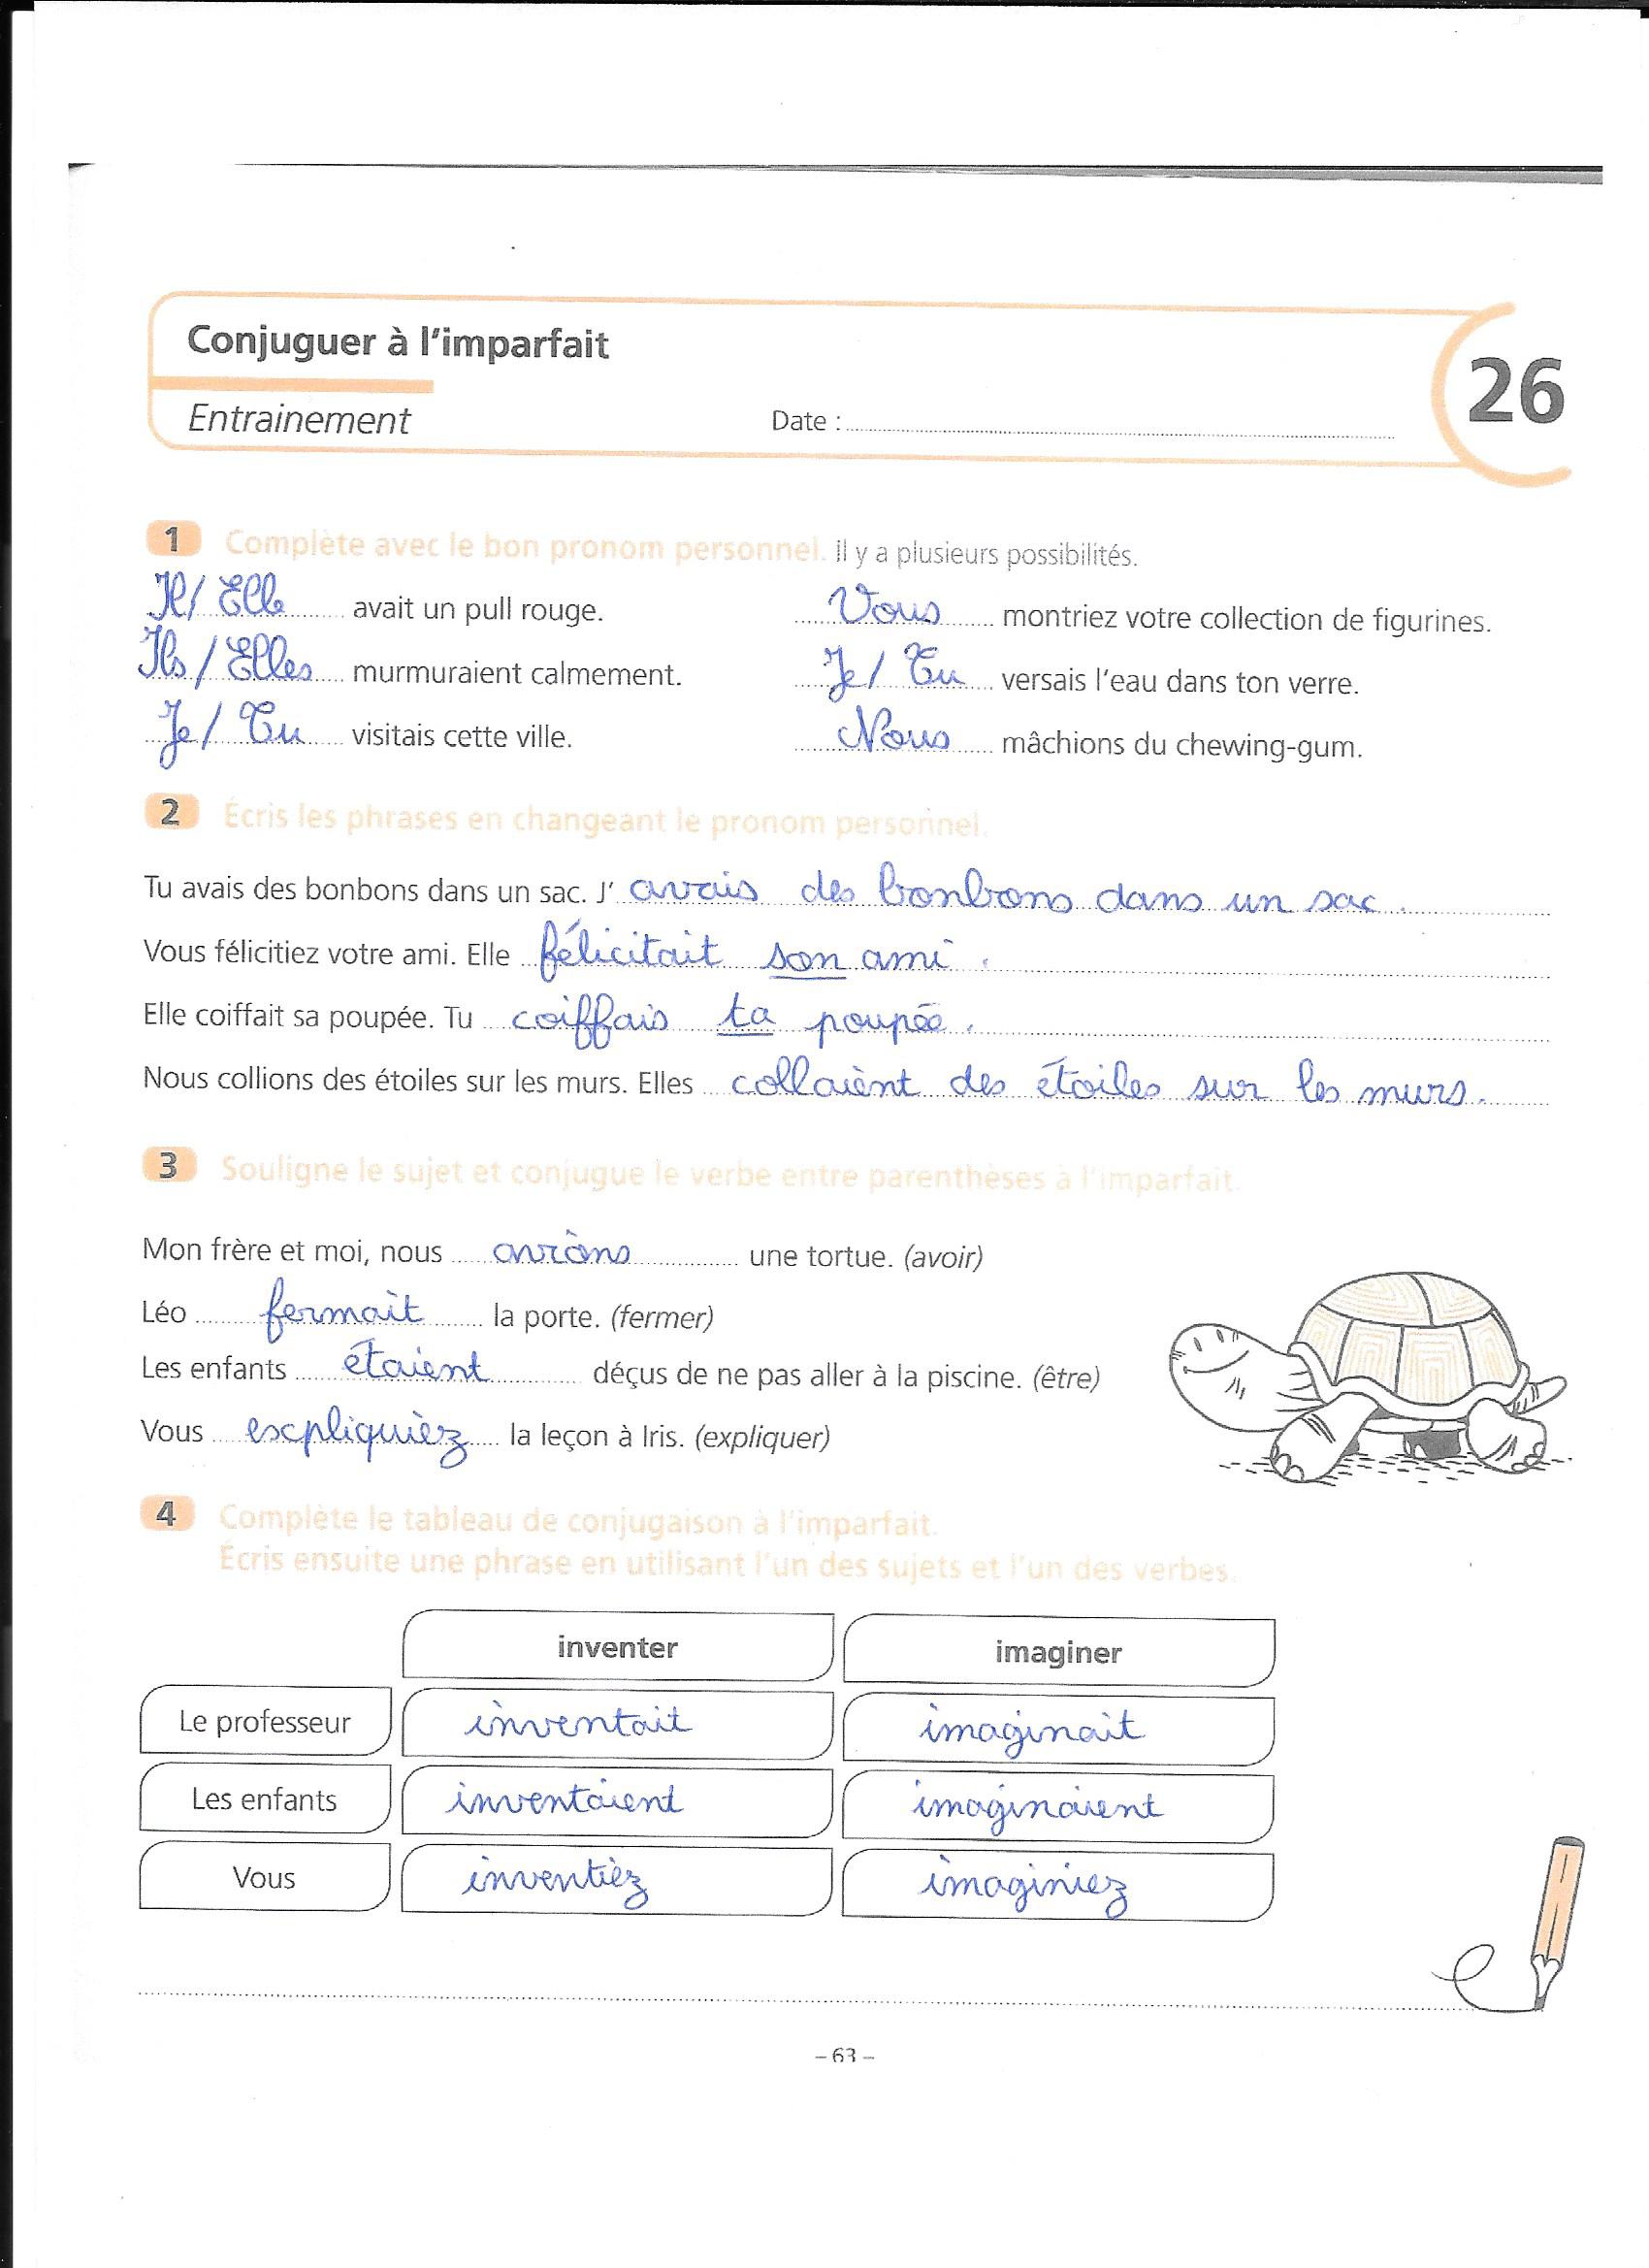 Conjuguer à l'imparfait
Entrainement Date :
26
1 Complète avec le bon pronom personnel. il y a plusieurs possibilités.
Il/ Elle avait un pull rouge. Vous montriez votre collection de figurines.
Ils / Elles murmuraient calmement. Je / Tu versais l'eau dans ton verre.
Je / Tu visitais cette ville. Nous mâchions du chewing-gum.
2 Écris les phrases en changeant le pronom personnel.
Tu avais des bonbons dans un sac. J' avais des bonbons dans un sac.
Vous félicitiez votre ami. Elle félicitait son ami.
Elle coiffait sa poupée. Tu coiffais ta poupée.
Nous collions des étoiles sur les murs. Elles collaient des étoiles sur les murs.
3 Souligne le sujet et conjugue le verbe entre parenthèses à l'imparfait.
Mon frère et moi, nous avions une tortue. (avoir)
Léo fermait la porte. (fermer)
Les enfants étaient déçus de ne pas aller à la piscine. (être)
Vous expliquiez la leçon à Iris. (expliquer)
4 Complète le tableau de conjugaison à l'imparfait.
Écris ensuite une phrase en utilisant l'un des sujets et l'un des verbes.
inventer imaginer
Le professeur inventait imaginait
Les enfants inventaient imaginaient
Vous inventiez imaginiez
– 63 –